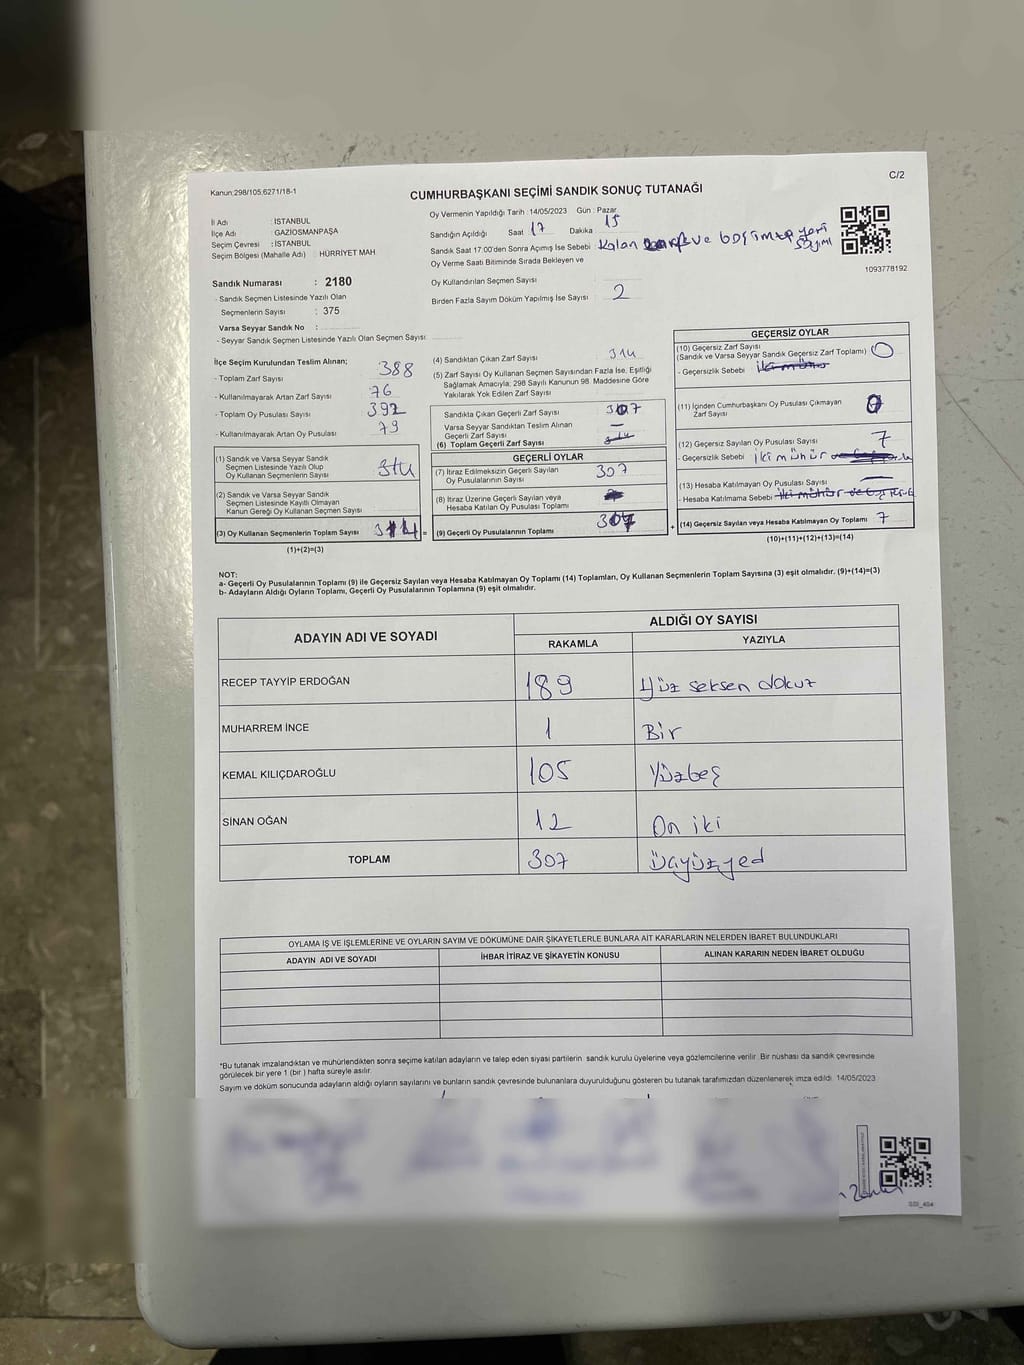 Kanun;298/105.6271/18-1
C/2
CUMHURBAŞKANI SEÇİMİ SANDIK SONUÇ TUTANAĞI
İl Adı : İSTANBUL
İlçe Adı : GAZİOSMANPAŞA
Seçim Çevresi : İSTANBUL
Seçim Bölgesi (Mahalle Adı) : HÜRRİYET MAH
Oy Vermenin Yapıldığı Tarih :14/05/2023 Gün : Pazar
Sandığın Açıldığı Saat 17 Dakika 15
Sandık Saat 17:00'den Sonra Açımış İse Sebebi Kalan ve
Oy Verme Saati Bitiminde Sırada Bekleyen ve
Oy Kullandırılan Seçmen Sayısı
Birden Fazla Sayım Döküm Yapılmış İse Sayısı 2
1093778192
Sandık Numarası : 2180
- Sandık Seçmen Listesinde Yazılı Olan
Seçmenlerin Sayısı : 375
Varsa Seyyar Sandık No :
- Seyyar Sandık Seçmen Listesinde Yazılı Olan Seçmen Sayısı:
İlçe Seçim Kurulundan Teslim Alınan;
- Toplam Zarf Sayısı 388
- Kullanılmayarak Artan Zarf Sayısı 76
- Toplam Oy Pusulası Sayısı 392
- Kullanılmayarak Artan Oy Pusulası 79
(1) Sandık ve Varsa Seyyar Sandık
Seçmen Listesinde Yazılı Olup
Oy Kullanan Seçmenlerin Sayısı 314
(2) Sandık ve Varsa Seyyar Sandık
Seçmen Listesinde Kayıtlı Olmayan
Kanun Gereği Oy Kullanan Seçmen Sayısı
(3) Oy Kullanan Seçmenlerin Toplam Sayısı 314 =
(1)+(2)=(3)
(4) Sandıktan Çıkan Zarf Sayısı 314
(5) Zarf Sayısı Oy Kullanan Seçmen Sayısından Fazla İse, Eşitliği
Sağlamak Amacıyla; 298 Sayılı Kanunun 98. Maddesine Göre
Yakılarak Yok Edilen Zarf Sayısı
Sandıkta Çıkan Geçerli Zarf Sayısı 307
Varsa Seyyar Sandıktan Teslim Alınan
Geçerli Zarf Sayısı —
(6) Toplam Geçerli Zarf Sayısı
GEÇERLİ OYLAR
(7) İtiraz Edilmeksizin Geçerli Sayılan
Oy Pusulasının Sayısı 307
(8) İtiraz Üzerine Geçerli Sayılan veya
Hesaba Katılan Oy Pusulası Toplamı
(9) Geçerli Oy Pusulalarının Toplamı 307 +
GEÇERSİZ OYLAR
(10) Geçersiz Zarf Sayısı
(Sandık ve Varsa Seyyar Sandık Geçersiz Zarf Toplamı) 0
- Geçersizlik Sebebi iki mühür
(11) İçinden Cumhurbaşkanı Oy Pusulası Çıkmayan
Zarf Sayısı 0
(12) Geçersiz Sayılan Oy Pusulası Sayısı 7
- Geçersizlik Sebebi iki mühür
(13) Hesaba Katılmayan Oy Pusulası Sayısı —
- Hesaba Katılmama Sebebi iki mühür ve
(14) Geçersiz Sayılan veya Hesaba Katılmayan Oy Toplamı 7
(10)+(11)+(12)+(13)=(14)
NOT:
a- Geçerli Oy Pusulalarının Toplamı (9) ile Geçersiz Sayılan veya Hesaba Katılmayan Oy Toplamı (14) Toplamları, Oy Kullanan Seçmenlerin Toplam Sayısına (3) eşit olmalıdır. (9)+(14)=(3)
b- Adayların Aldığı Oyların Toplamı, Geçerli Oy Pusulalarının Toplamına (9) eşit olmalıdır.
ADAYIN ADI VE SOYADI
ALDIĞI OY SAYISI
RAKAMLA YAZIYLA
RECEP TAYYİP ERDOĞAN 189 Yüz seksen dokuz
MUHARREM İNCE 1 Bir
KEMAL KILIÇDAROĞLU 105 Yüzbeş
SİNAN OĞAN 12 On iki
TOPLAM 307 Üçyüzyed
OYLAMA İŞ VE İŞLEMLERİNE VE OYLARIN SAYIM VE DÖKÜMÜNE DAİR ŞİKAYETLERLE BUNLARA AİT KARARLARIN NELERDEN İBARET BULUNDUKLARI
ADAYIN ADI VE SOYADI İHBAR İTİRAZ VE ŞİKAYETİN KONUSU ALINAN KARARIN NEDEN İBARET OLDUĞU
*Bu tutanak imzalandıktan ve mühürlendikten sonra seçime katılan adayların ve talep eden siyasi partilerin sandık kurulu üyelerine veya gözlemcilerine verilir. Bir nüshası da sandık çevresinde
görülecek bir yere 1 (bir) hafta süreyle asılır.
Sayım ve döküm sonucunda adayların aldığı oyların sayılarını ve bunların sandık çevresinde bulunanlara duyurulduğunu gösteren bu tutanak tarafımızdan düzenlenerek imza edildi. 14/05/2023